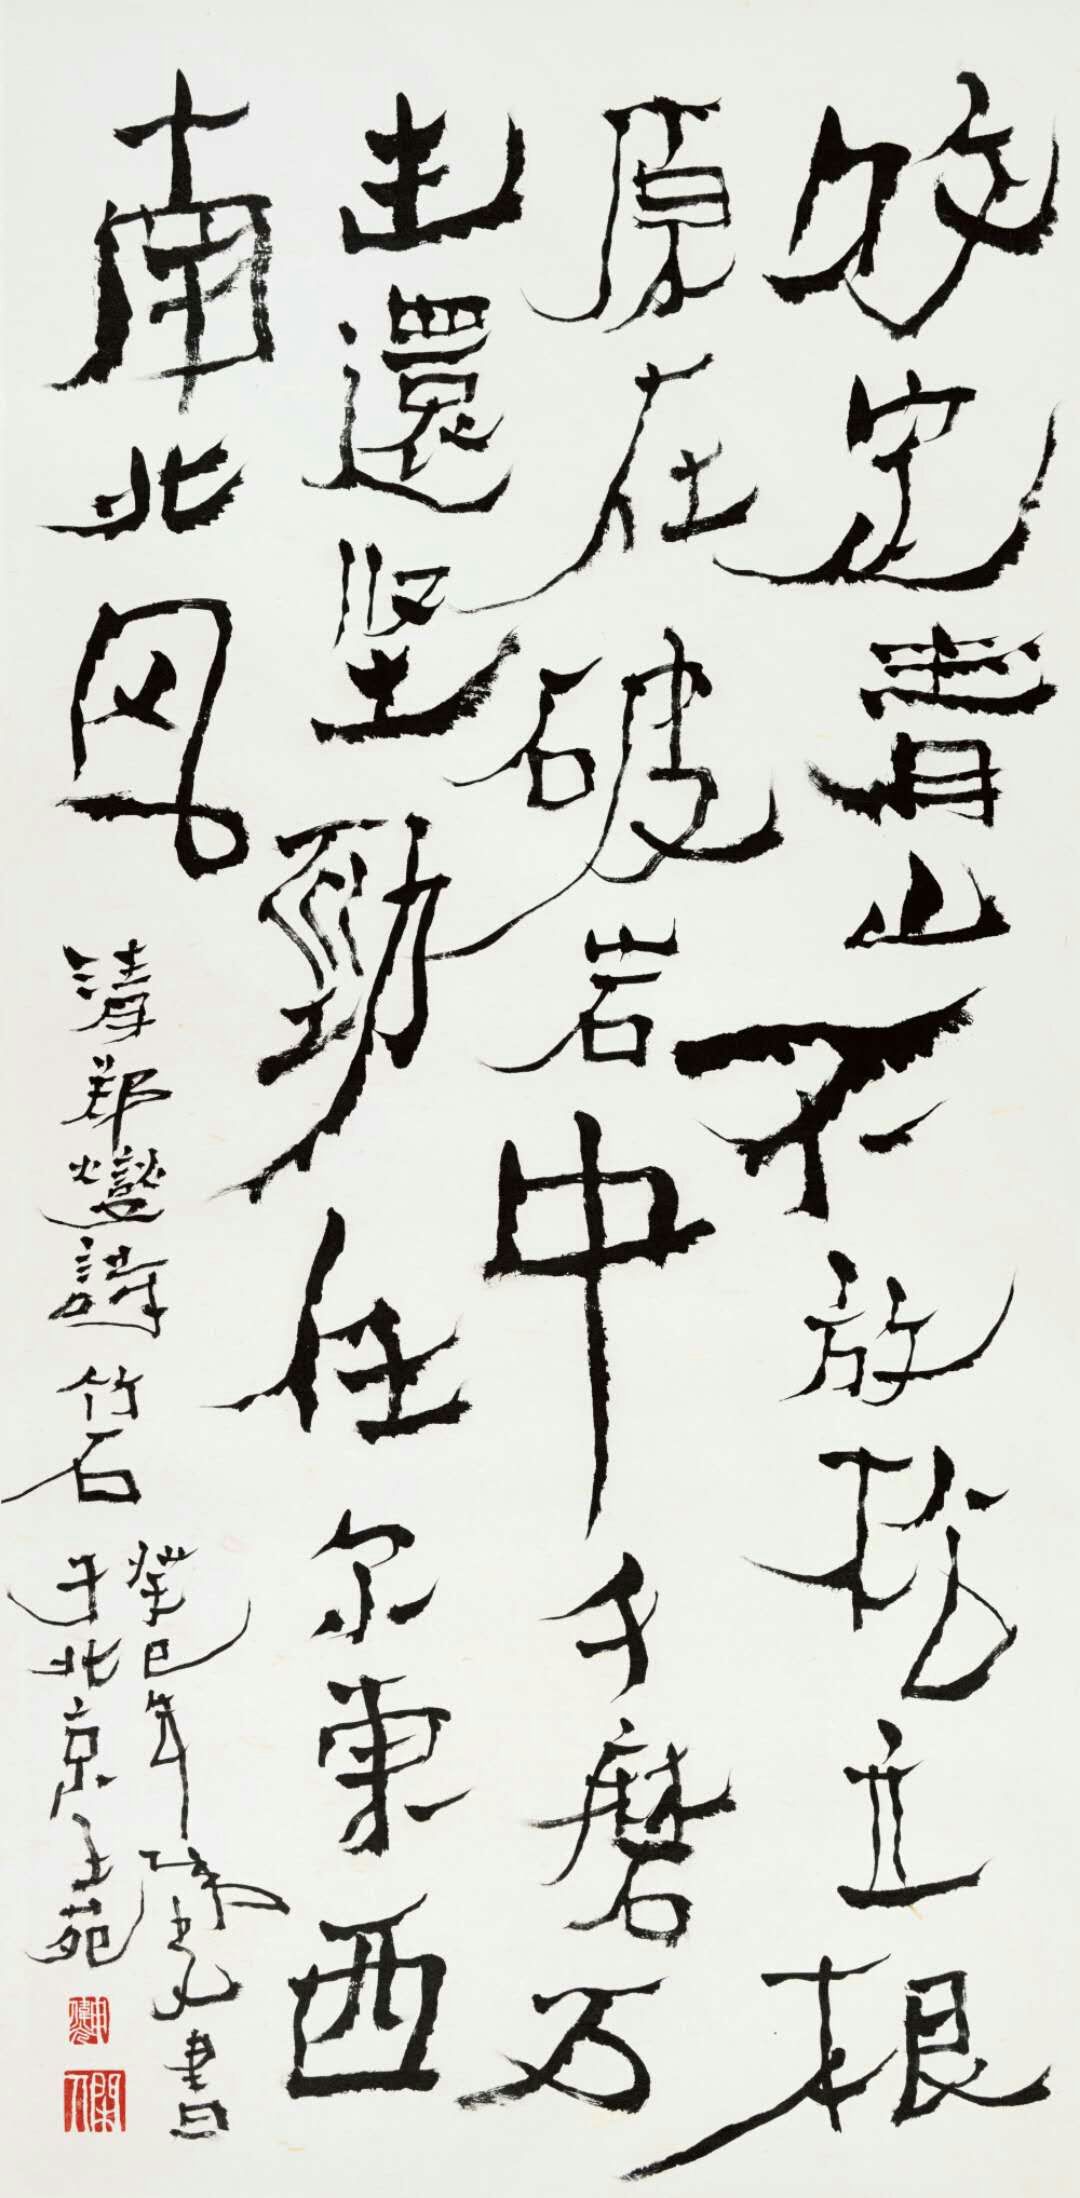 咬定青山不放松立根
原在破岩中千磨万
击還坚勁任尔東西
南北风
清郑燮詩竹石
癸巳年書
于北京苑